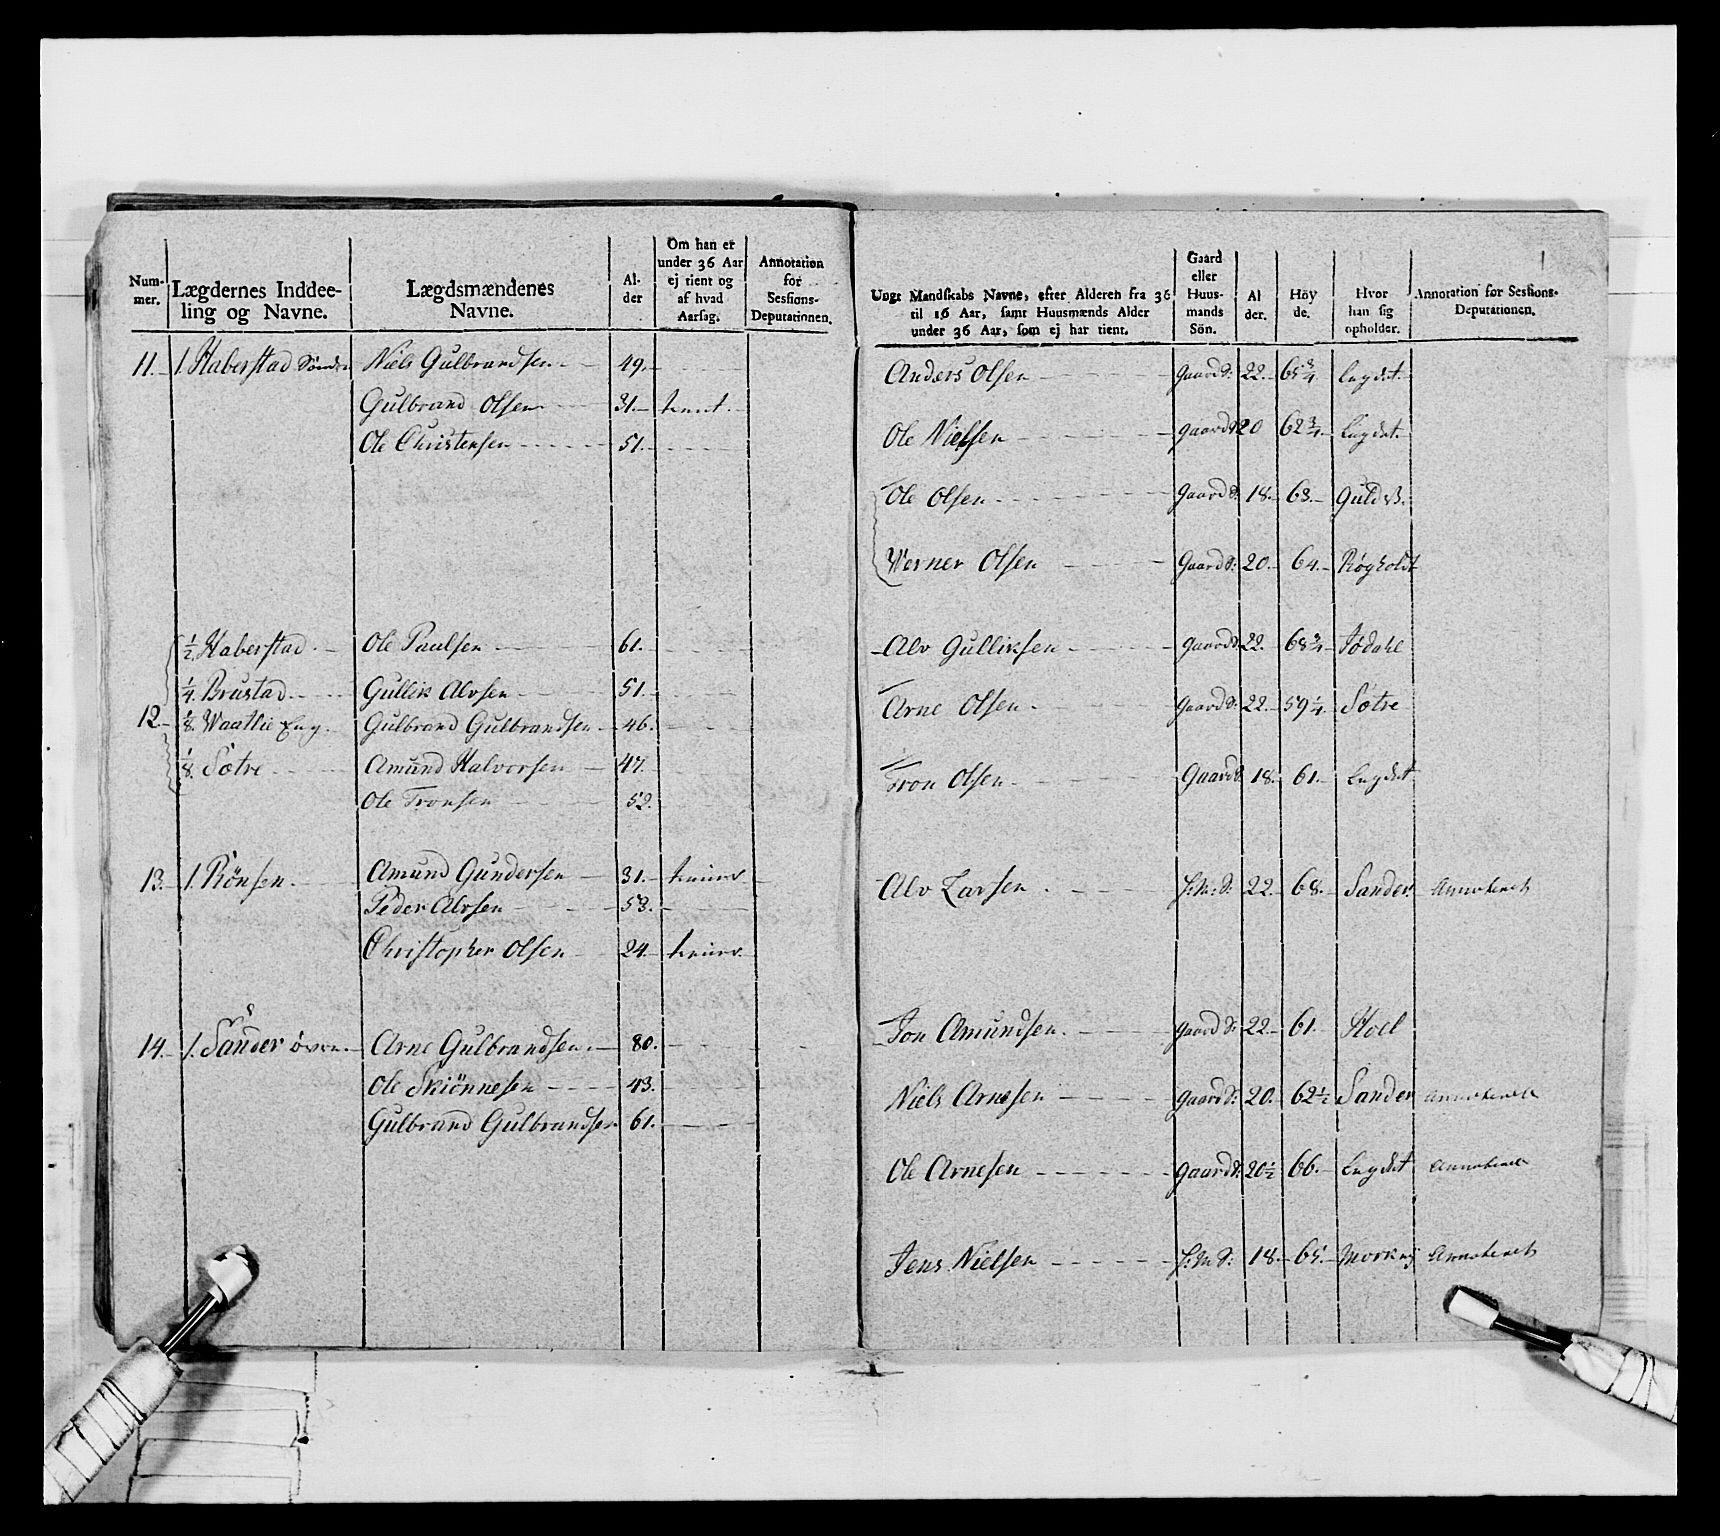 Num-
mer.
Lægdernes Inddee-
ling og Navne.
Lægdsmændenes
Navne.
Al-
der
Om han er
under 36 Aar
ej tient og
af hvad
Aarsag.
Annotation
for
Sessions-
Deputationen.
11. 1. Haberstad Søndre Niels Gulbrandsen 49.
Gulbrand Olsen 31. tient.
Ole Christensen 51.
½ Haberstad. Ole Paulsen 61.
¼ Brustad. Gullik Alvsen 51.
12. ⅛. Waatlie Eng. Gulbrand Gulbrandsen 46.
⅛. Sotre Amund Halvorsen 47.
Ole Tronsen 52.
13. 1. Rönsen. Amund Gundersen 31.
Peder Alvsen 53.
Christopher Olsen 24.
14. 1. Sander øvre. Arne Gulbrandsen. 80.
Ole Skiönnesen 43.
Gulbrand Gulbrandsen 61.
Ungt Mandskabs Navne, efter Alderen fra 36
til 16 Aar, samt Huusmænds Alder
under 36 Aar, som ej har tient.
Gaard
eller
Huus-
mands
Sön.
Al
der.
Höy
de.
Hvor
han sig
opholder.
Annotation for Sessions-
Deputationen.
Anders Olsen Gaard S: 22. 65¾ Lægdet.
Ole Nielsen gaard S 20 62¾ Lægdet.
Ole Olsen Gaard S: 18. 63.
Werner Olsen Gaard S: 20. 64. Røgholdt
Alv Gulliksen gaard S. 22. 68¾ Jødahl
Arne Olsen Gaard S: 22. 59¼ Sotre
Tron Olsen Gaard S 18. 61. Lægdet
Alv Larsen 22. 68. Sander Annoteret
Jon Amundsen. gaard S: 22. 61. Hoel
Niels Arnesen gaard S: 20. 62½ Sander Annoteret
Ole Arnesen gaard S: 20½ 66. Lægdet Annoteret
Jens Nielsen 18. 65. Annoteret